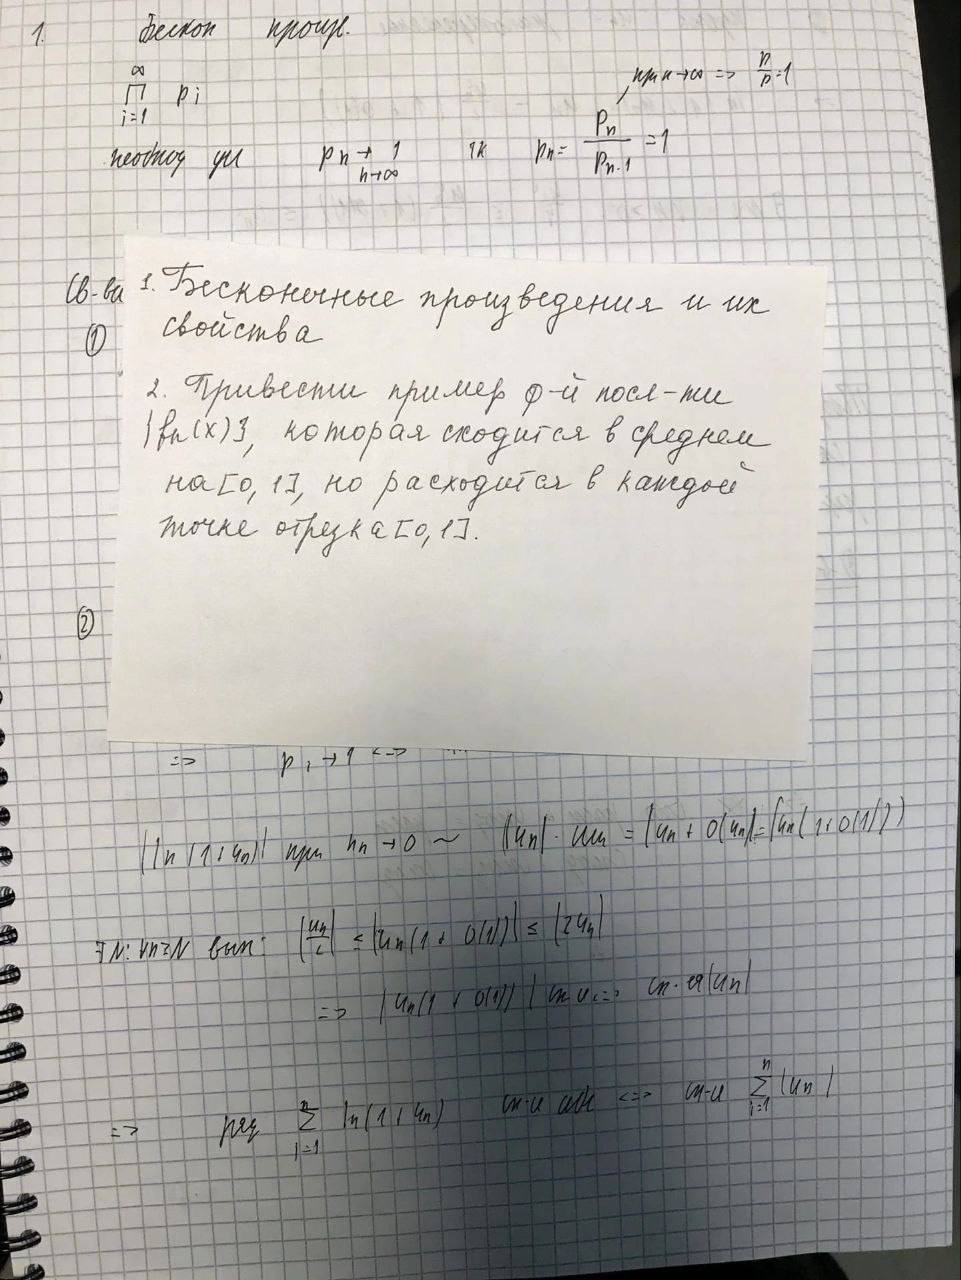 1. Бескон произв.
∞
∏ pᵢ
i=1
при n→∞ => P/P=1
необход усл pₙ → 1 тк pₙ = Pₙ/Pₙ₋₁ = 1
n→∞
Св-ва
①
1. Бесконечные произведения и их
свойства
2. Привести пример ф-й посл-ти
{fₙ(x)}, которая сходится в среднем
на [0, 1], но расходится в каждой
точке отрезка [0, 1].
②
=> pᵢ → 1 <=>
|ln(1+uₙ)| при uₙ → 0 ~ |uₙ| = |uₙ + o(uₙ)| = |uₙ(1+o(1))|
∃N: ∀n≥N вып: |uₙ/2| ≤ |uₙ(1+o(1))| ≤ |2uₙ|
=> |uₙ(1+o(1))| сх-ся <=> сх-ся |uₙ|
=> ряд ∑ ln(1+uₙ) сх-ся абс <=> сх-ся ∑ |uₙ|
n i=1 n i=1